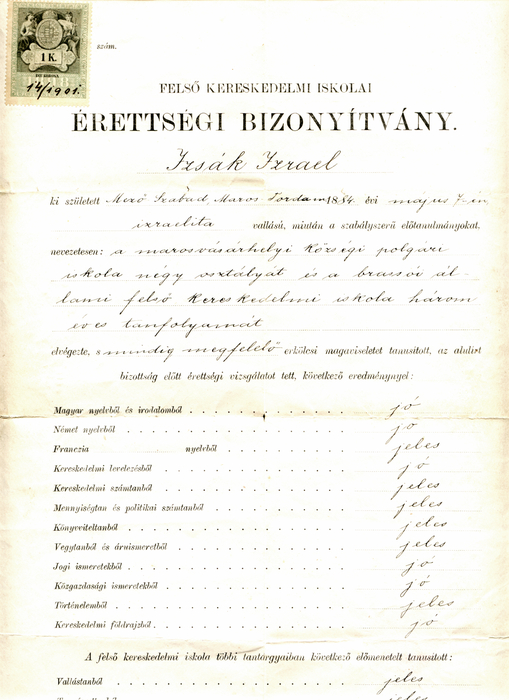 1 K.
EGY KORONA
14/1901.
szám.
FELSŐ KERESKEDELMI ISKOLAI
ÉRETTSÉGI BIZONYÍTVÁNY.
Izsák Izrael
ki született Mező Szabad, Maros Torda m 1884. évi május 7-én
izraelita vallású, miután a szabályszerű előtanulmányokat,
nevezetesen: a marosvásárhelyi községi polgári
iskola négy osztályát és a brassói ál-
lami felső kereskedelmi iskola három
éves tanfolyamát
elvégezte, s mindig megfelelő erkölcsi magaviseletet tanusított, az alulirt
bizottság előtt érettségi vizsgálatot tett, következő eredménynyel:
Magyar nyelvből és irodalomból . . . . . . . . . . . jó
Német nyelvből . . . . . . . . . . . . . . . jó
Franczia nyelvből . . . . . . . . jeles
Kereskedelmi levelezésből . . . . . . . . . . . . . jó
Kereskedelmi számtanból . . . . . . . . . . . . . jeles
Mennyiségtan és politikai számtanból . . . . . . . . . jeles
Könyviteltanból . . . . . . . . . . . . . . . jeles
Vegytanból és áruismeretből . . . . . . . . . . . . jeles
Jogi ismeretekből . . . . . . . . . . . . . . . jó
Közgazdasági ismeretekből . . . . . . . . . . . . . jó
Történelemből . . . . . . . . . . . . . . . . jeles
Kereskedelmi földrajzból . . . . . . . . . . . . . jó
A felső kereskedelmi iskola többi tantárgyaiban következő előmenetelt tanusított:
Vallástanból . . . . . . . . . . . . . . . . jeles
jeles